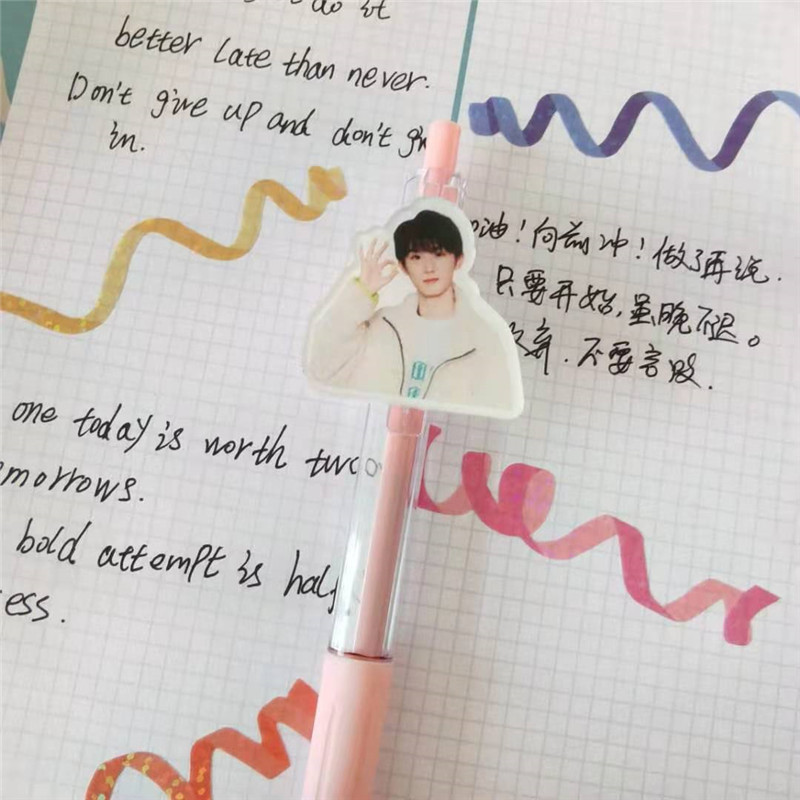 do it
better late than never.
Don't give up and don't
in.
one today is worth two
morrows.
bold attempt is half
ess.
油！向前冲！做了再说.
只要开始,虽晚不迟。
弃.不要言败.